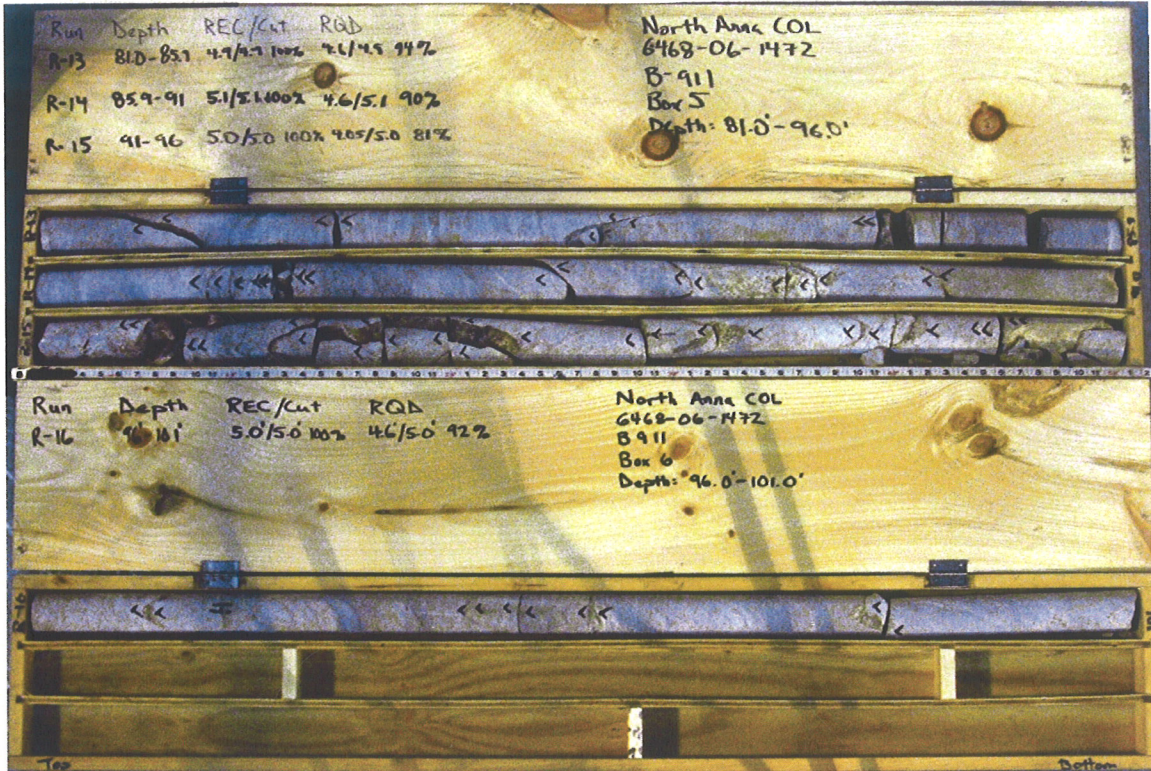 Run Depth REC/Cut RQD
R-13 81.0-85.9 4.9/4.9 100% 4.6/4.9 94%
R-14 85.9-91 5.1/5.1 100% 4.6/5.1 90%
R-15 91-96 5.0/5.0 100% 4.05/5.0 81%
North Anna COL
6468-06-1472
B-911
Box 5
Depth: 81.0'-96.0'
R-13
Run Depth REC/Cut RQD
R-16 96' 101' 5.0'/5.0' 100% 4.6/5.0' 92%
North Anna COL
6468-06-1472
B 911
Box 6
Depth: 96.0'-101.0'
R-16
Top
Bottom